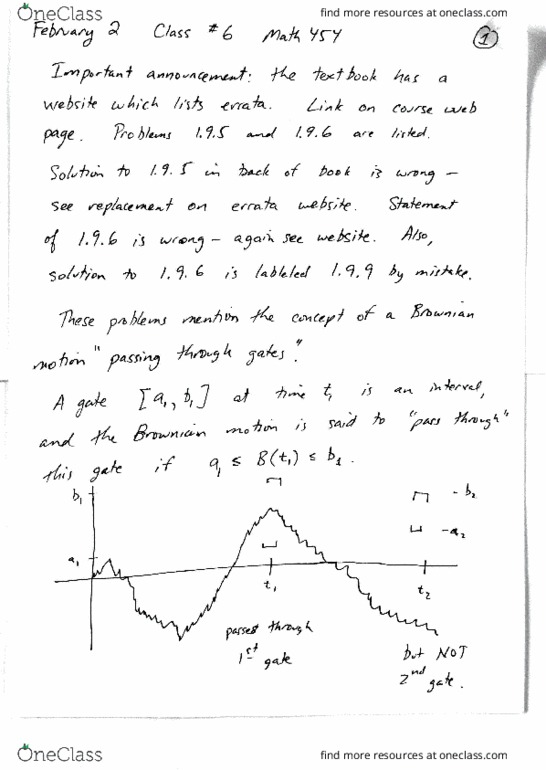 OneClass
find more resources at oneclass.com
February 2 Class #6 Math 454 1
Important announcement: the textbook has a
website which lists errata. Link on course web
page. Problems 1.9.5 and 1.9.6 are listed.
Solution to 1.9.5 in back of book is wrong –
see replacement on errata website. Statement
of 1.9.6 is wrong – again see website. Also,
solution to 1.9.6 is lableled 1.9.9 by mistake.
These problems mention the concept of a Brownian
motion "passing through gates".
A gate [a₁, b₁] at time t₁ is an interval,
and the Brownian motion is said to "pass through"
this gate if a₁ ≤ B(t₁) ≤ b₁.
b₁
- b₂
a₁
- a₂
t₁
t₂
passed through
1st gate
but NOT
2nd gate.
OneClass
find more resources at oneclass.com